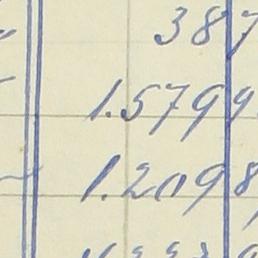 387
1.5799
1.2098